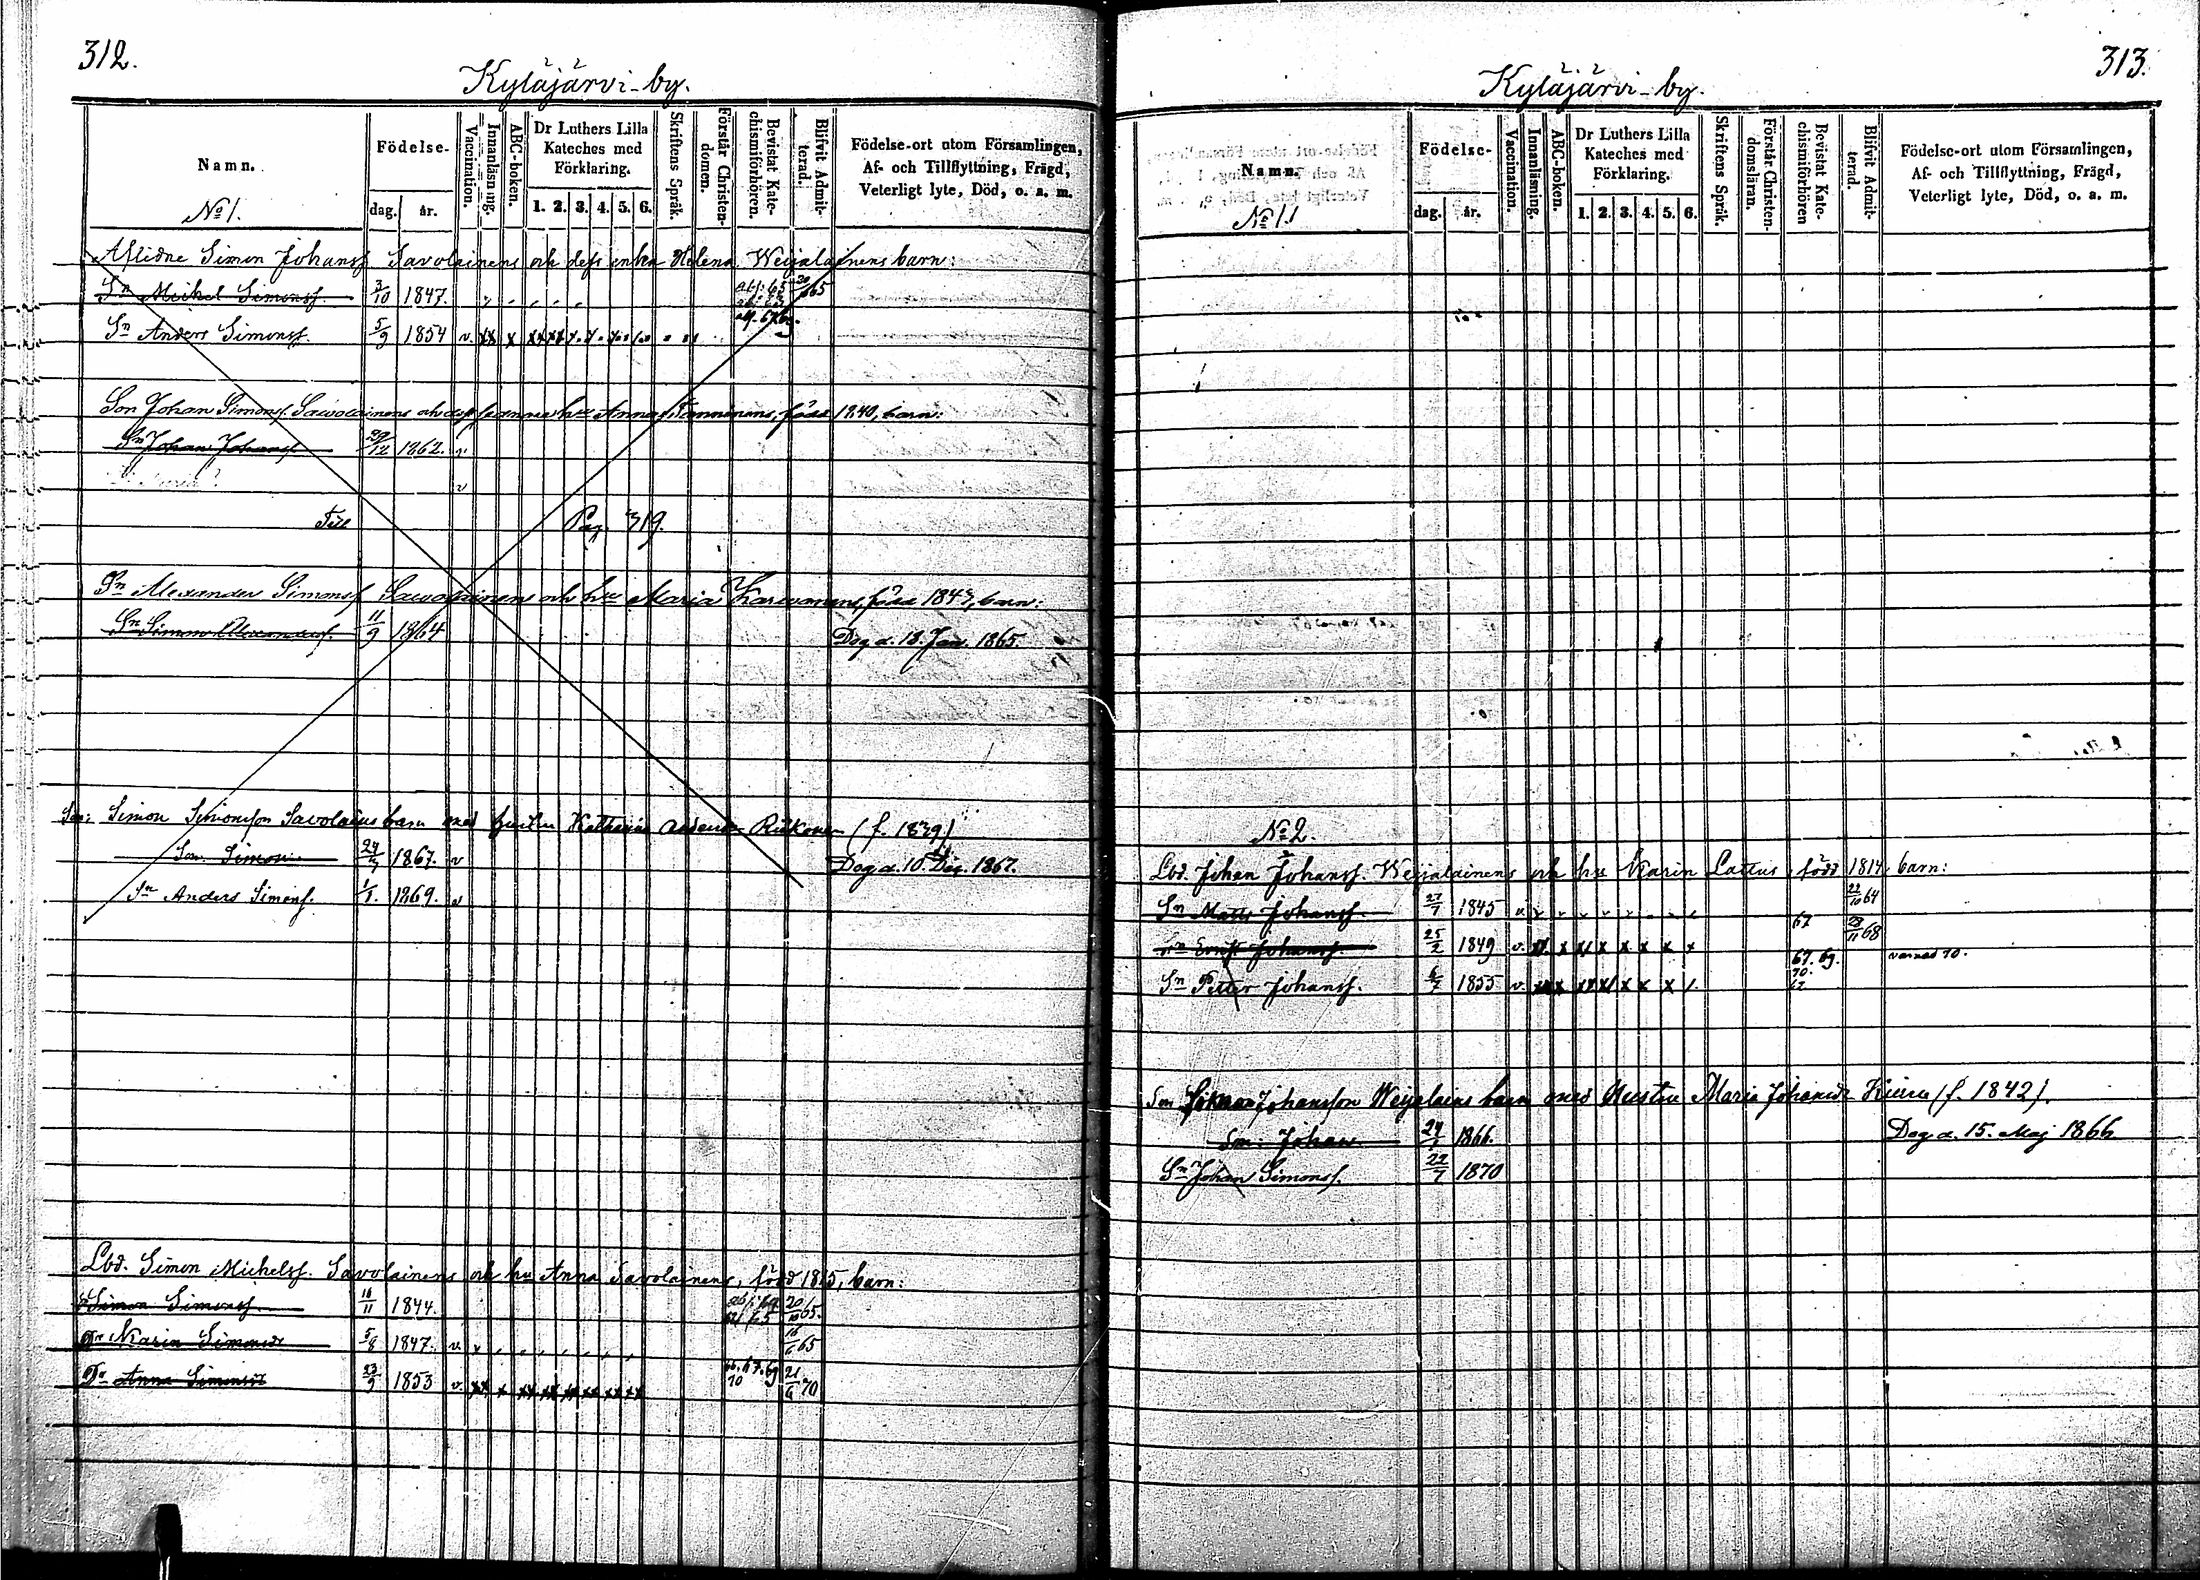 312.
Kyläjärvi-by.
Namn.
Födelse-
dag. år.
Vaccination.
Innanläsning.
ABC-boken.
Dr Luthers Lilla Kateches med Förklaring.
1. 2. 3. 4. 5. 6.
Skriftens Språk.
Förstår Christen-domen.
Bevistat Kate-chismiförhören.
Blifvit Admit-terad.
Födelse-ort utom Församlingen, Af- och Tillflyttning, Frägd, Veterligt lyte, Död, o. a. m.
No 1.
Aflidne Simon Johanss. Savolainens och dess enka Helena Weijalainens barn:
Sn Mickel Simonss. 3/10 1847. 65
Sn Anders Simonss. 5/9 1854 v.
Son Johan Simonss. Savolainens och dess hu Anna Tanninens, född 1840, barn:
Sn Johan Johanss. 29/12 1862. v
v
Till Pag. 319.
Sn Alexander Simonss. Savolainens och hu Maria Karvonens, född 1843, barn:
Sn Simon Alexanderss. 11/9 1864 Dog d. 18. Jan. 1865.
Son: Simon Simonsson Savolains barn med hustru Katharina Rükonen (f. 1839)
Son. Simon. 1867. v Dog d. 10. Dec. 1867.
Sn Anders Simonss. 1/1. 1869. v
Lbd. Simon Michelss. Savolainens och hu Anna Savolainens, född 1815, barn:
Simon Simonss. 16/11 1844. 20/10 65.
Dr Karin Simonsdr 5/8 1847. v. 65
Dr Anna Simonsdr 23/9 1853 v. 66. 67. 69 70 21/6 70
313.
Kyläjärvi-by.
Namn.
Födelse-
dag. år.
Vaccination.
Innanläsning.
ABC-boken.
Dr Luthers Lilla Kateches med Förklaring.
1. 2. 3. 4. 5. 6.
Skriftens Språk.
Förstår Christen-domsläran.
Bevistat Kate-chismiförhören
Blifvit Admit-terad.
Födelse-ort utom Församlingen, Af- och Tillflyttning, Frägd, Veterligt lyte, Död, o. a. m.
No 1.
No 2.
Lbd. Johan Johanss. Weijalainens och hu Karin Lattus, född 1814, barn:
Sn Matts Johanss. 27/7 1845 v. 64
Sn Ernst Johanss. 25/2 1849 v. 67 68
Sn Petter Johanss. 6/7 1855 v. 67. 69. 70. varnad 70.
Son Simon Johansson Weijalains barn med Hustru Maria Johansdr (f. 1842).
Son: Johan 1866. Dog d. 15. Maj 1866.
Sn Johan Simonss. 22/7 1870